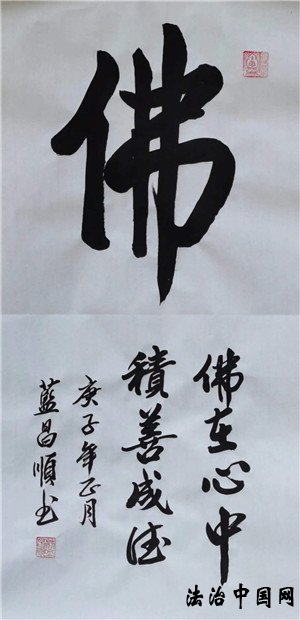 佛
佛在心中
積善成德
庚子年正月
藍昌順书
法治中国网